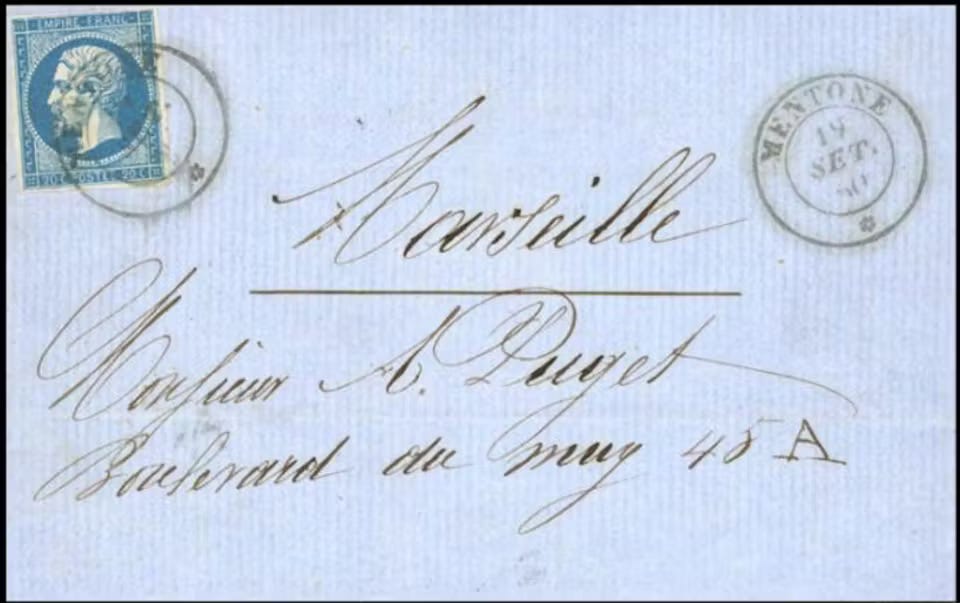 EMPIRE FRANC
20 C POSTES 20 C
MENTONE
19
SET.
60
Marseille
Monsieur A. Puget
Boulevard du muy 45 A